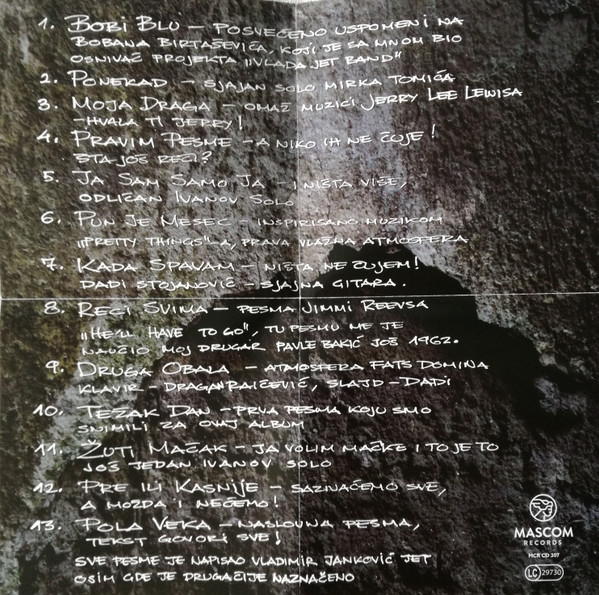 1. BOBI BLU – POSVEĆENO USPOMENI NA
BOBANA BIRTAŠEVIĆA, KOJI JE SA MNOM BIO
OSNIVAČ PROJEKTA „VLADA JET BAND"
2. PONEKAD – SJAJAN SOLO MIRKA TOMIĆA
3. MOJA DRAGA – OMAŽ MUZICI JERRY LEE LEWISA
– HVALA TI JERRY!
4. PRAVIM PESME – A NIKO IH NE ČUJE!
ŠTA JOŠ REĆI?
5. JA SAM SAMO JA – I NIŠTA VIŠE,
ODLIČAN IVANOV SOLO
6. PUN JE MESEC – INSPIRISANO MUZIKOM
„PRETTY THINGS"-A, PRAVA VLAŽNA ATMOSFERA
7. KADA SPAVAM – NIŠTA NE ČUJEM!
DADI STOJANOVIĆ – SJAJNA GITARA.
8. RECI SVIMA – PESMA JIMMI REEVSA
„HE'LL HAVE TO GO", TU PESMU ME JE
NAUČIO MOJ DRUGAR PAVLE BAKIĆ JOŠ 1962.
9. DRUGA OBALA – ATMOSFERA FATS DOMINA
KLAVIR – DRAGAN RAIČEVIĆ, SLAJD – DADI
10. TEŽAK DAN – PRVA PESMA KOJU SMO
SNIMILI ZA OVAJ ALBUM
11. ŽUTI MAČAK – JA VOLIM MAČKE I TO JE TO
JOŠ JEDAN IVANOV SOLO
12. PRE ILI KASNIJE – SAZNAĆEMO SVE,
A MOŽDA I NEĆEMO!
13. POLA VEKA – NASLOVNA PESMA,
TEKST GOVORI SVE!
SVE PESME JE NAPISAO VLADIMIR JANKOVIĆ JET
OSIM GDE JE DRUGAČIJE NAZNAČENO
MASCOM
RECORDS
MCR CD 307
LC 29730